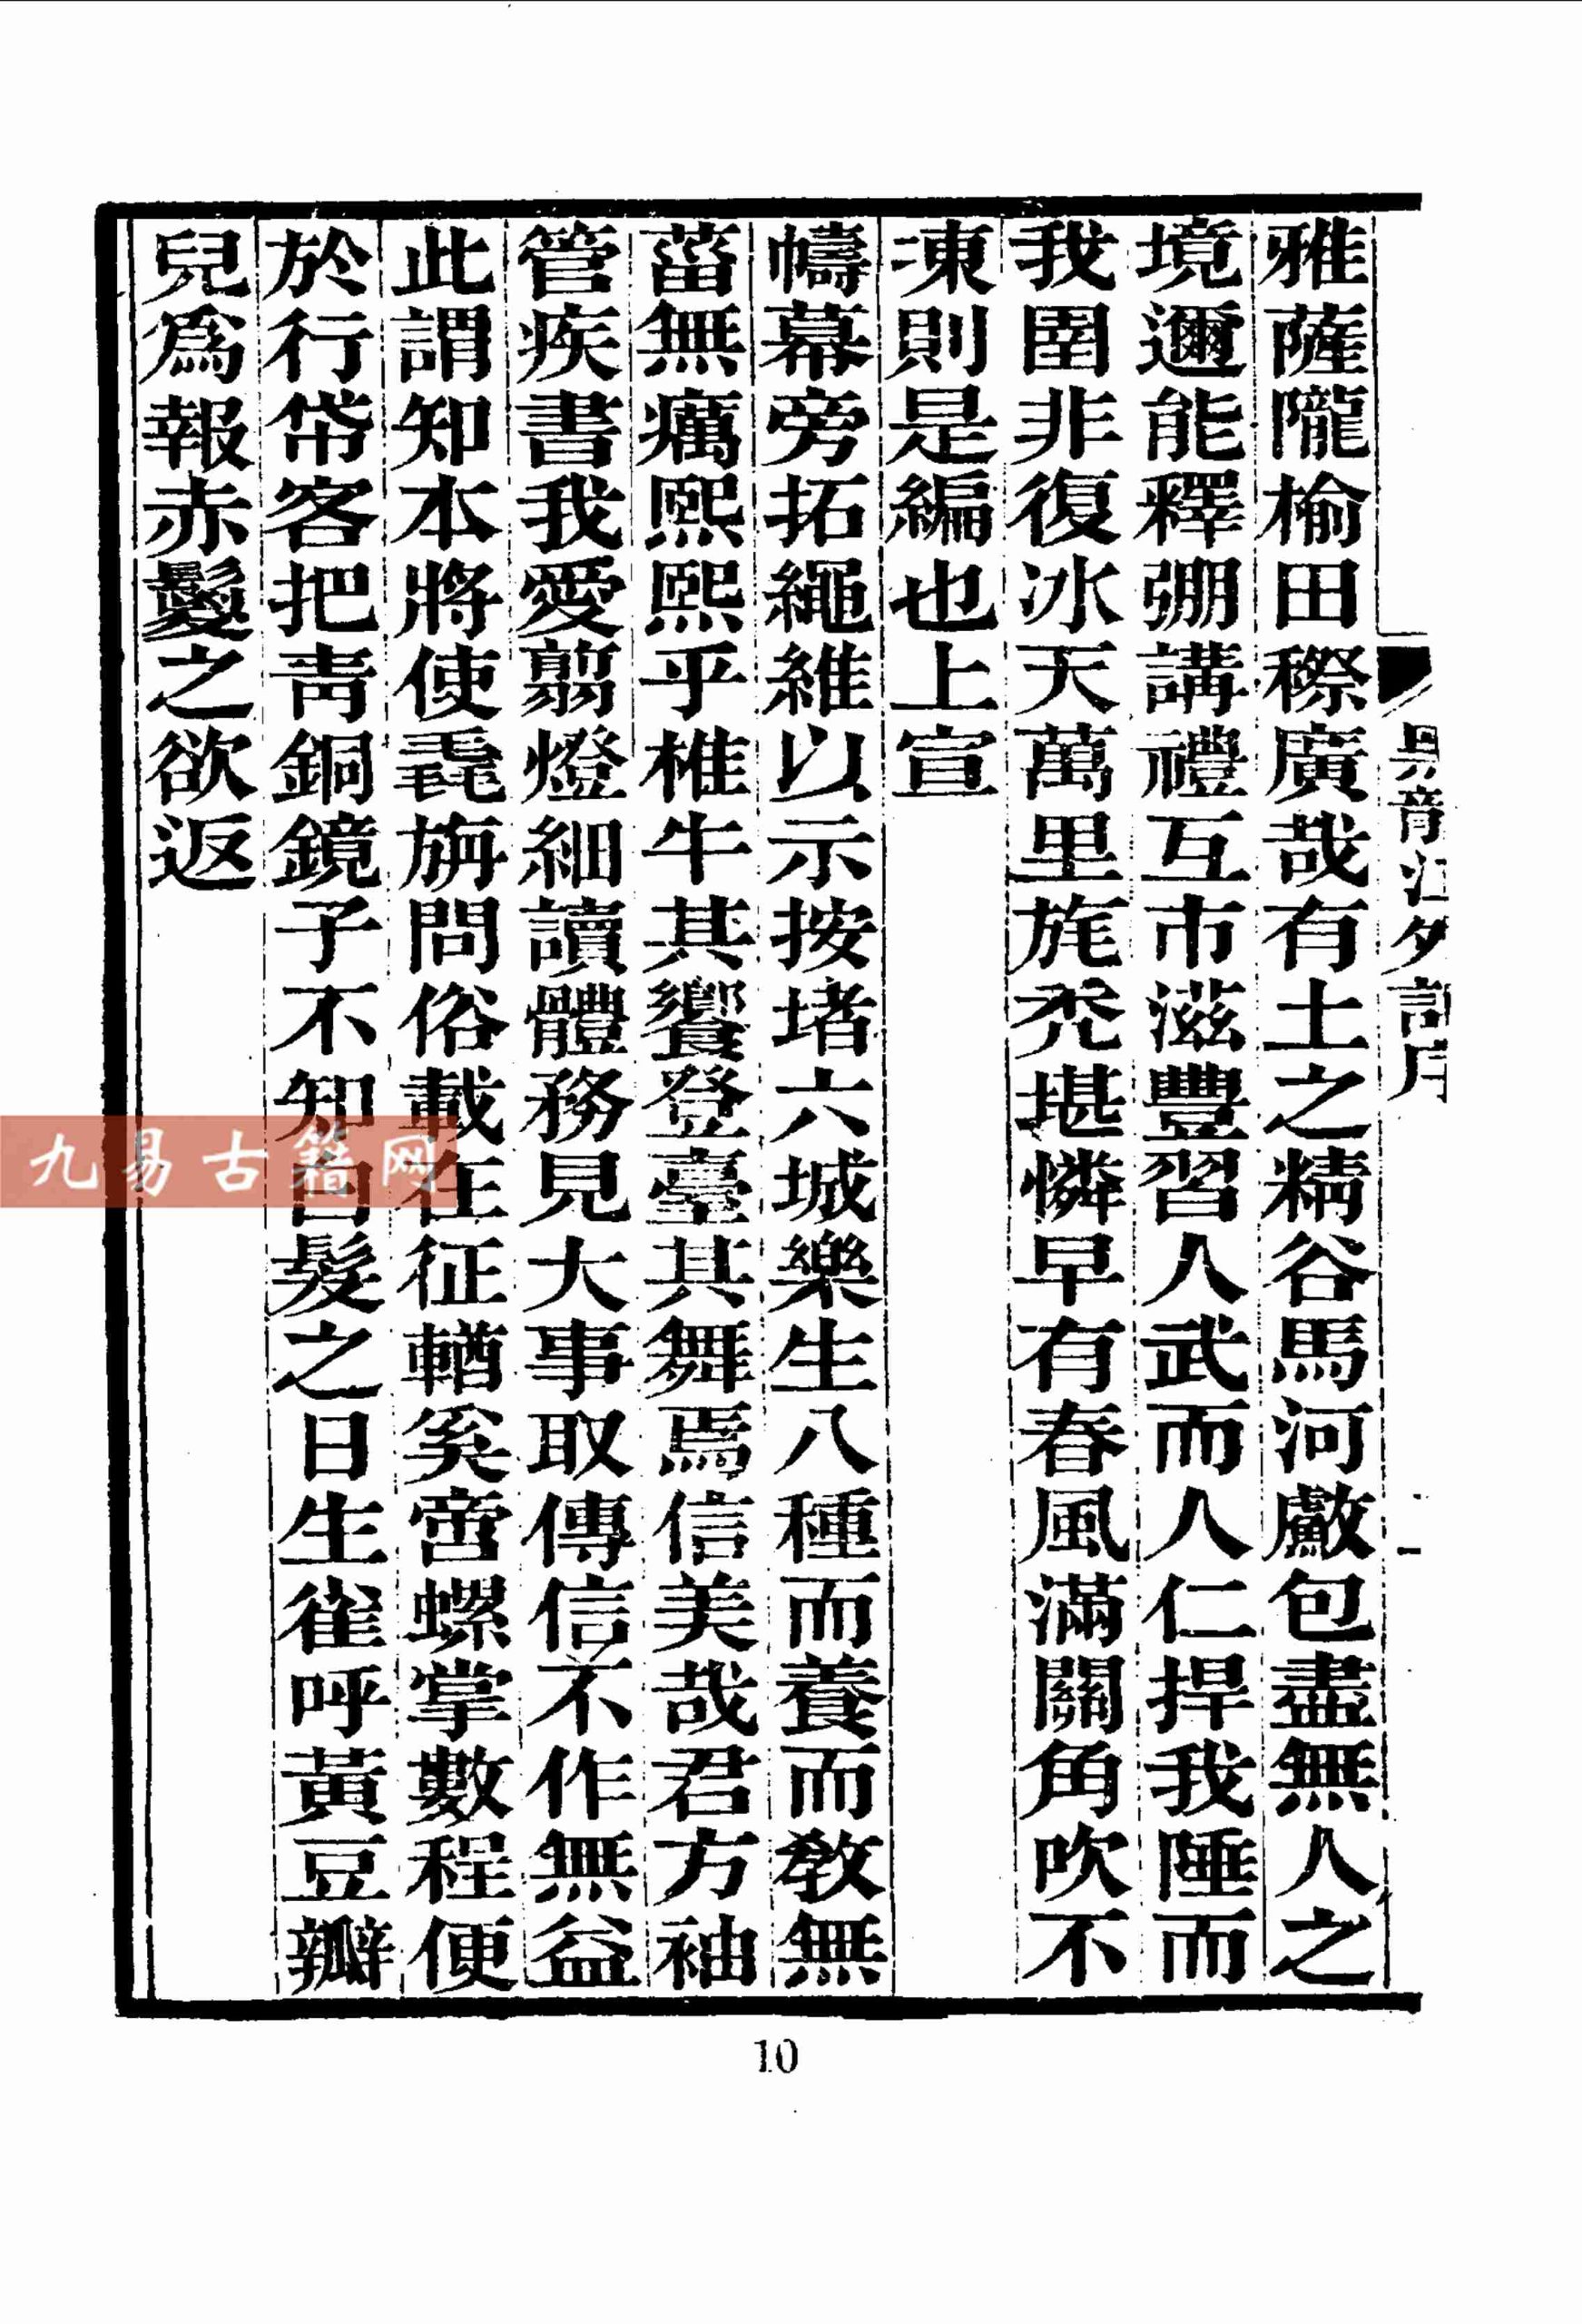 黑龍江外記序
一
雅薩隴榆田穄廣哉有土之精谷馬河歔包盡無人之
境邇能釋弸講禮互市滋豐習人武而人仁捍我陲而
我圉非復冰天萬里旄禿堪憐早有春風滿關角吹不
凍則是編也上宣
幬幕旁拓繩維以示按堵六城樂生八種而養而教無
菑無癘熙熙乎椎牛其饗登臺其舞焉信美哉君方袖
管疾書我愛翦燈細讀體務見大事取傳信不作無益
此謂知本將使毳旃問俗載在征輶奚啻螺掌數程便
於行帒客把青銅鏡子不知白髮之日生雀呼黃豆瓣
兒爲報赤鬘之欲返
九易古籍网
10